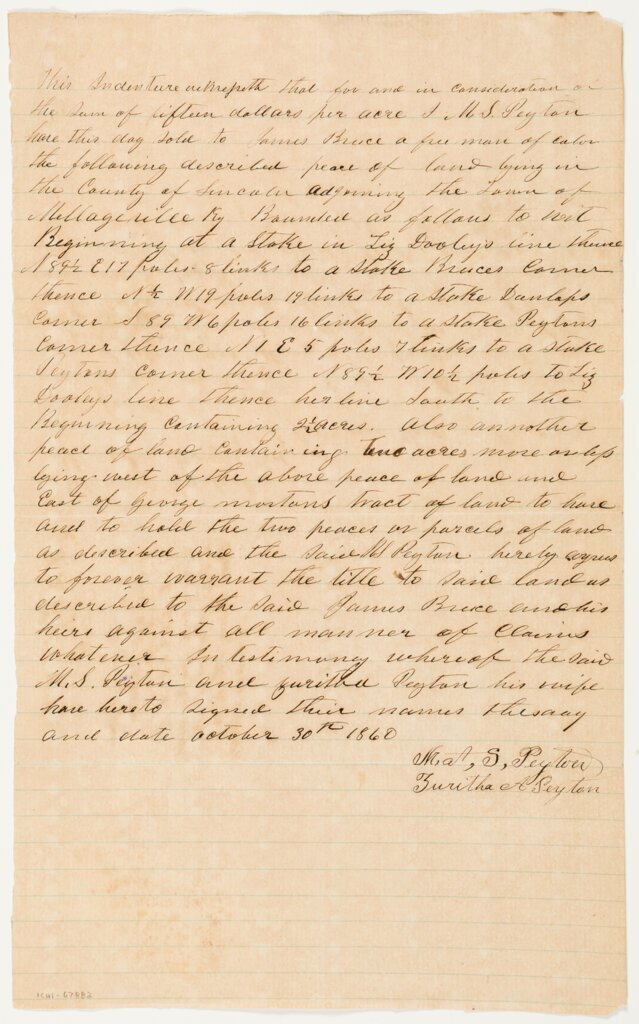 This Indenture witnesseth that for and in consideration of
the sum of fifteen dollars per acre I M. S. Peyton
have this day sold to James Bruce a free man of color
the following described peace of land lying in
the County of Lincoln adjoining the Town of
Millageville Ky Bounded as follows to wit
Beginning at a Stake in Liz Dooley's line thence
N 89½ E 17 poles 8 links to a Stake Bruces Corner
thence N ½ W 19 poles 19 links to a Stake Dunlaps
Corner S 89 W 6 poles 16 links to a Stake Peytons
Corner thence N 1 E 5 poles 7 links to a stake
Peytons Corner thence N 89½ W 10½ poles to Liz
Dooleys line thence her line South to the
Beginning Containing 2½ acres. Also annother
peace of land Containing two acres more or less
lying west of the above peace of land and
East of George mortons tract of land to have
and to hold the two peaces or parcels of land
as described and the said M Peyton hereby agrees
to forever warrant the title to said land as
described to the said James Bruce and his
heirs against all manner of Claims
whatever In testimony whereof the said
M. S. Peyton and zuritha Peyton his wife
have hereto signed their names the day
and date october 30th 1860
Mat, S, Peyton
Zuritha A Peyton
ICHI-67882